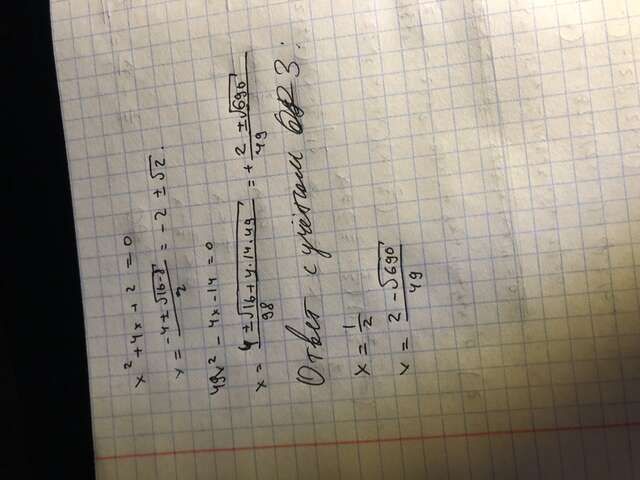 x² + 4x + 2 = 0
x = (-4 ± √(16-8))/2 = -2 ± √2.
49x² - 4x - 14 = 0
x = (4 ± √(16 + 4·14·49))/98 = + (2 ± √690)/49
Ответ с учётом ОДЗ:
x = 1/2
x = (2 - √690)/49